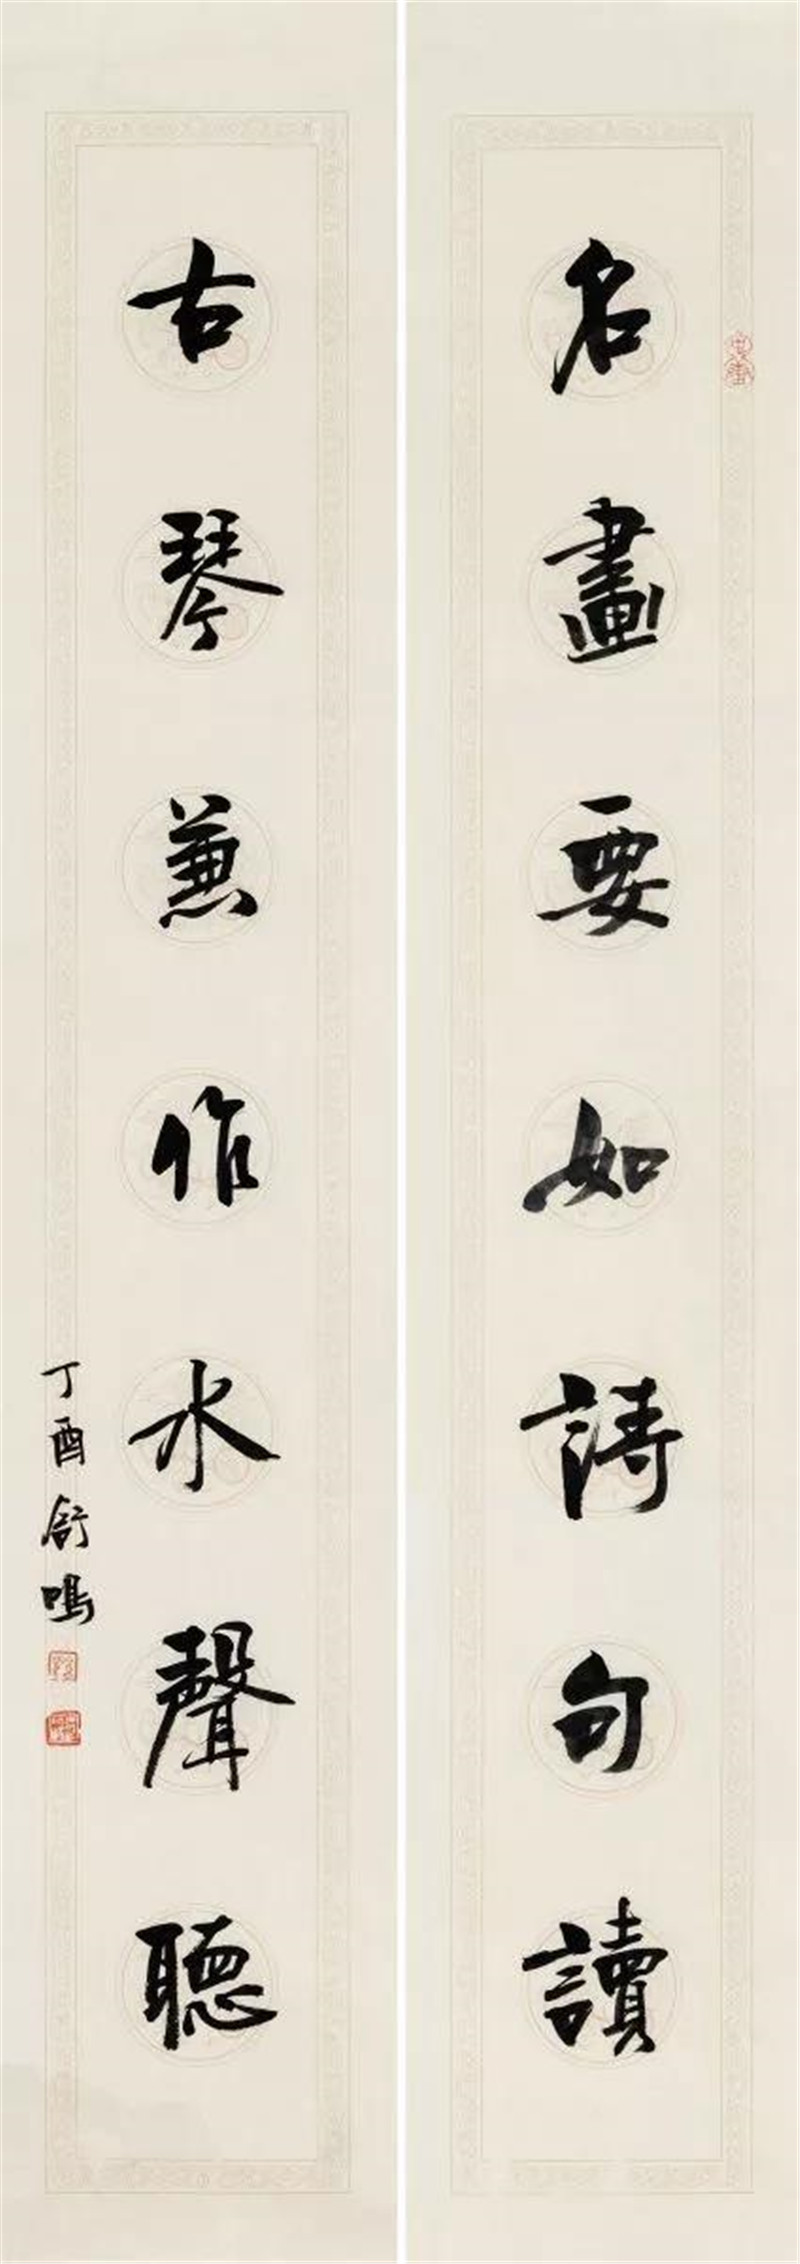 名畫要如詩句讀
古琴兼作水聲聽
丁酉舒鳴